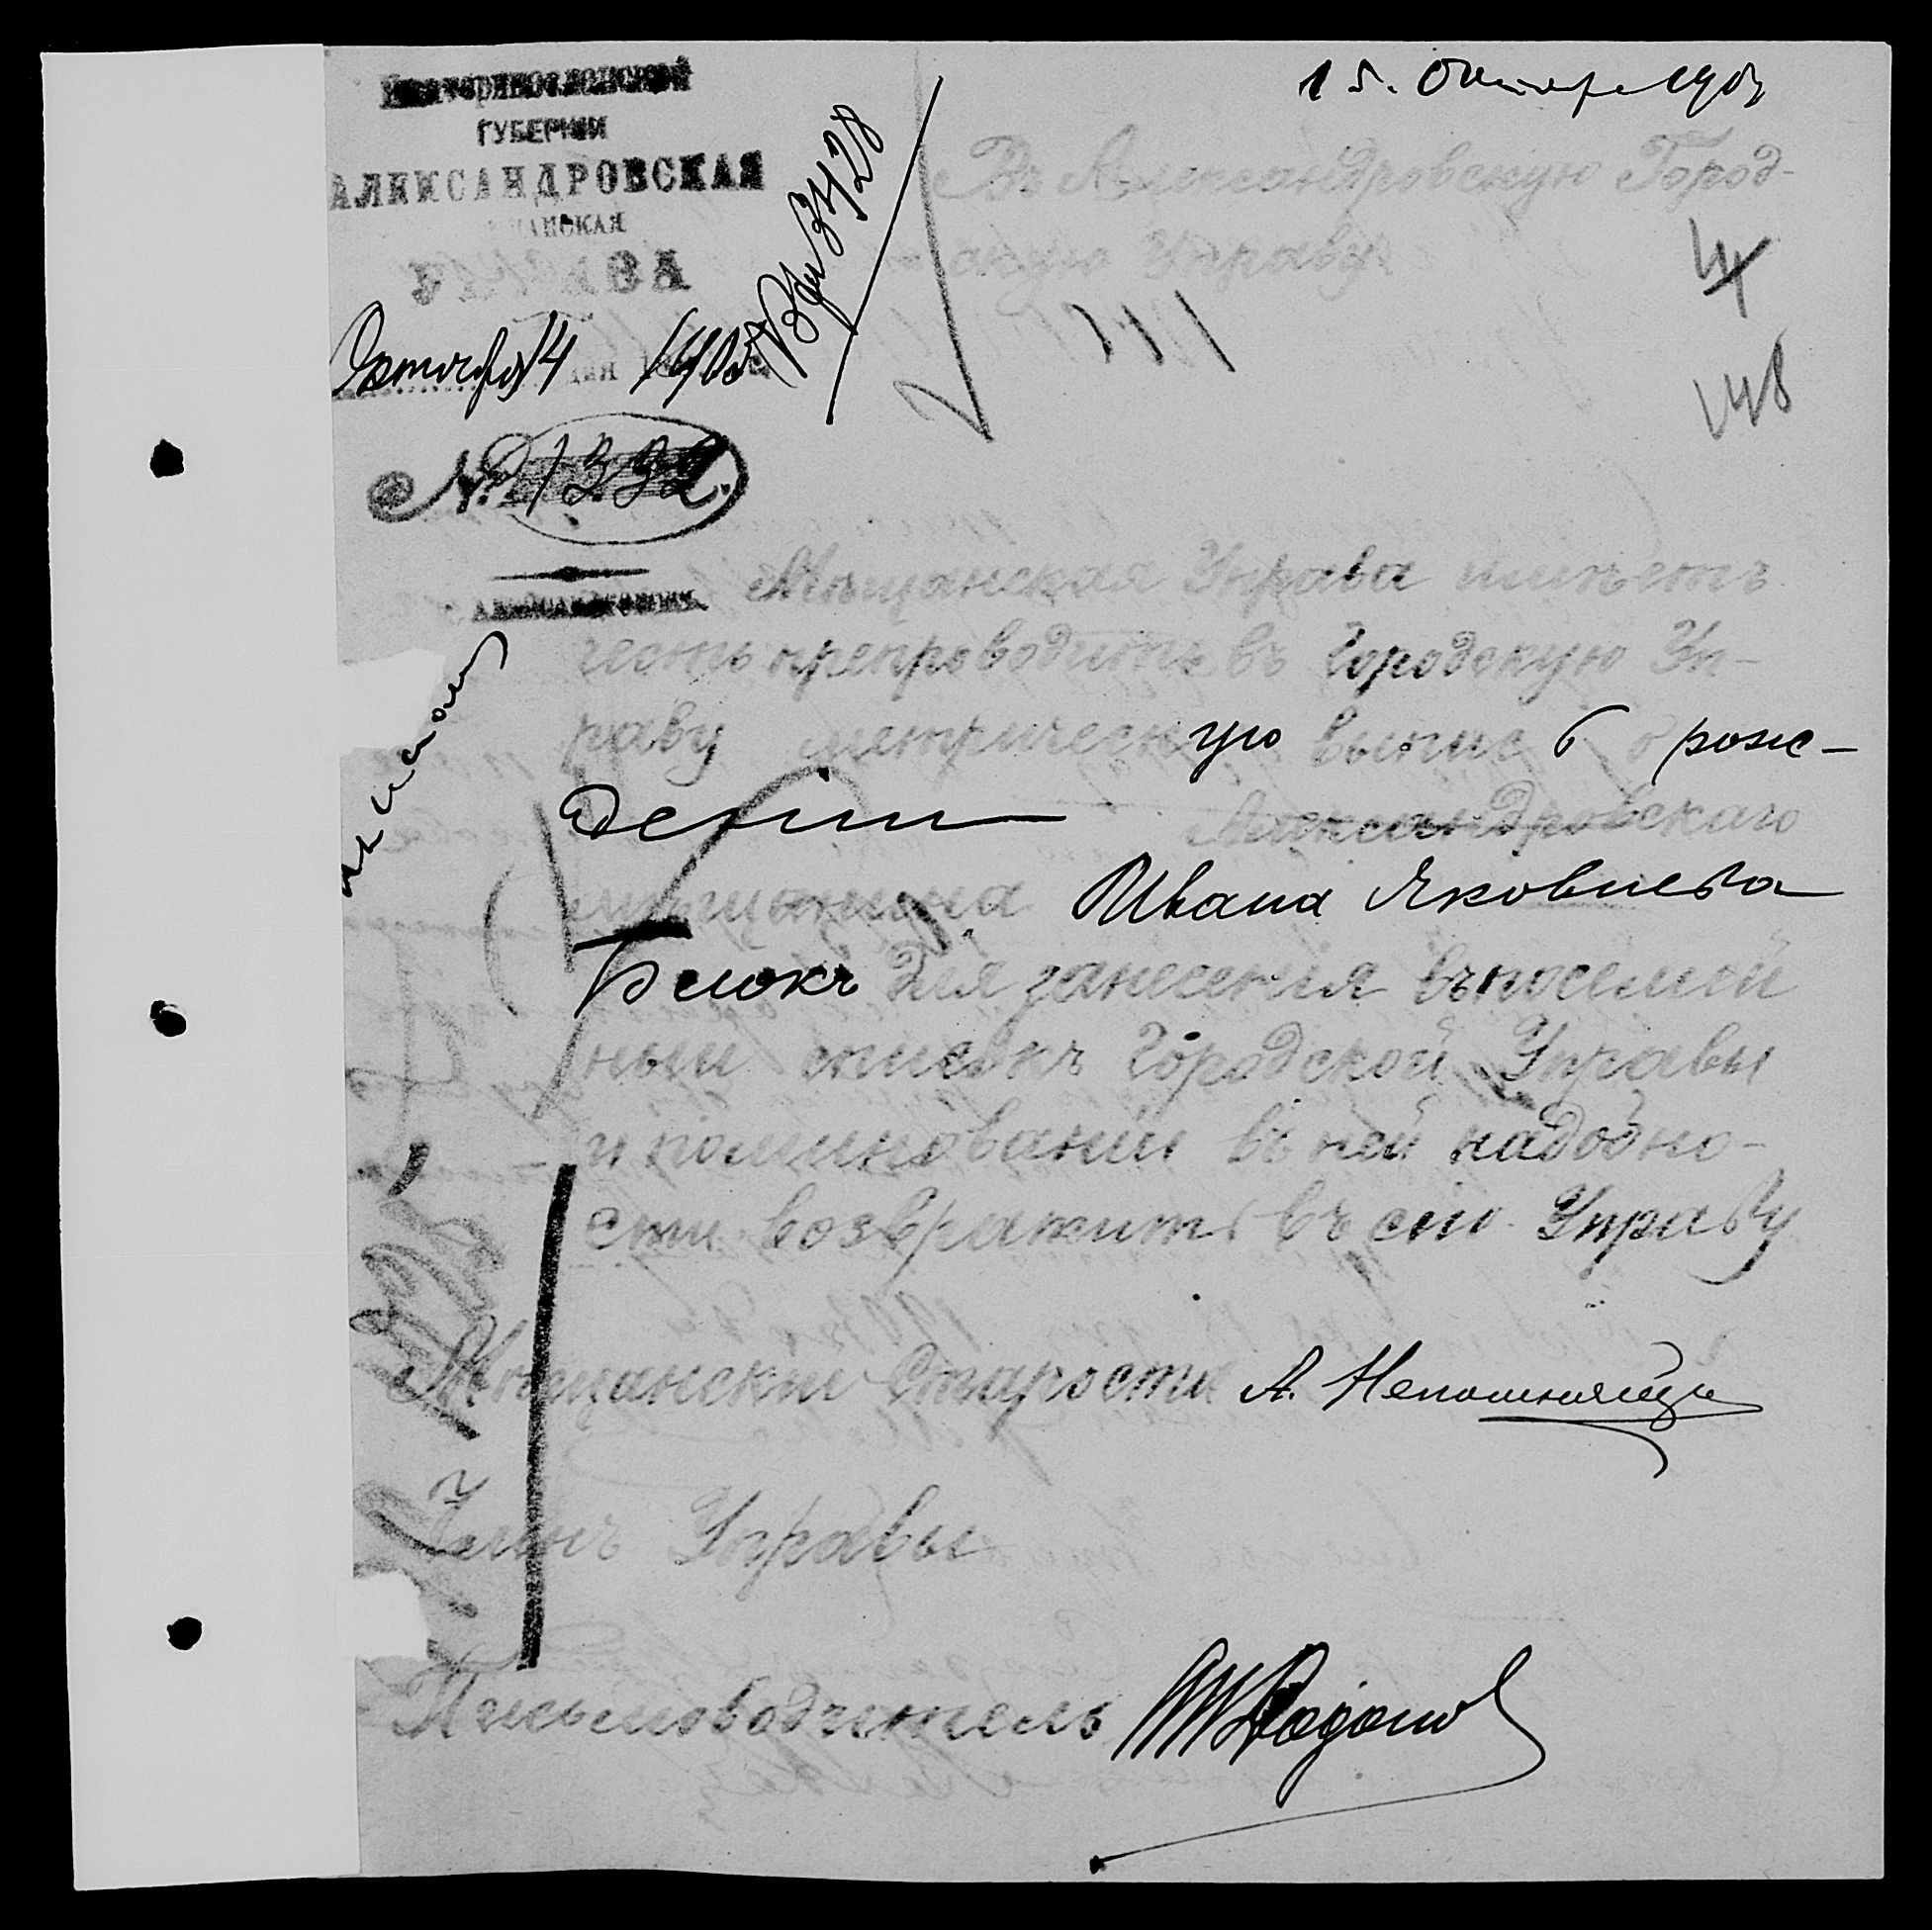 Екатеринославской
ГУБЕРНІИ
АЛЕКСАНДРОВСКАЯ
МѢЩАНСКАЯ
УПРАВА
Октября 14 дня 1903
№ 1332
Вх 3428
15. Октября 1903
Въ Александровскую Город-
скую Управу
148
Мѣщанская Управа имѣетъ
честь препроводить въ Городскую Уп-
раву метрическую выпись о рож-
деніи Александровскаго
мѣщанина Ивана Яковлева
Блокъ для занесенія въ посемей
ный списокъ Городской Управы
и по минованіи въ ней надобно-
сти возвратить въ сію Управу
Мѣщанскій Староста А. Непомнящій
Членъ Управы
Письмоводитель